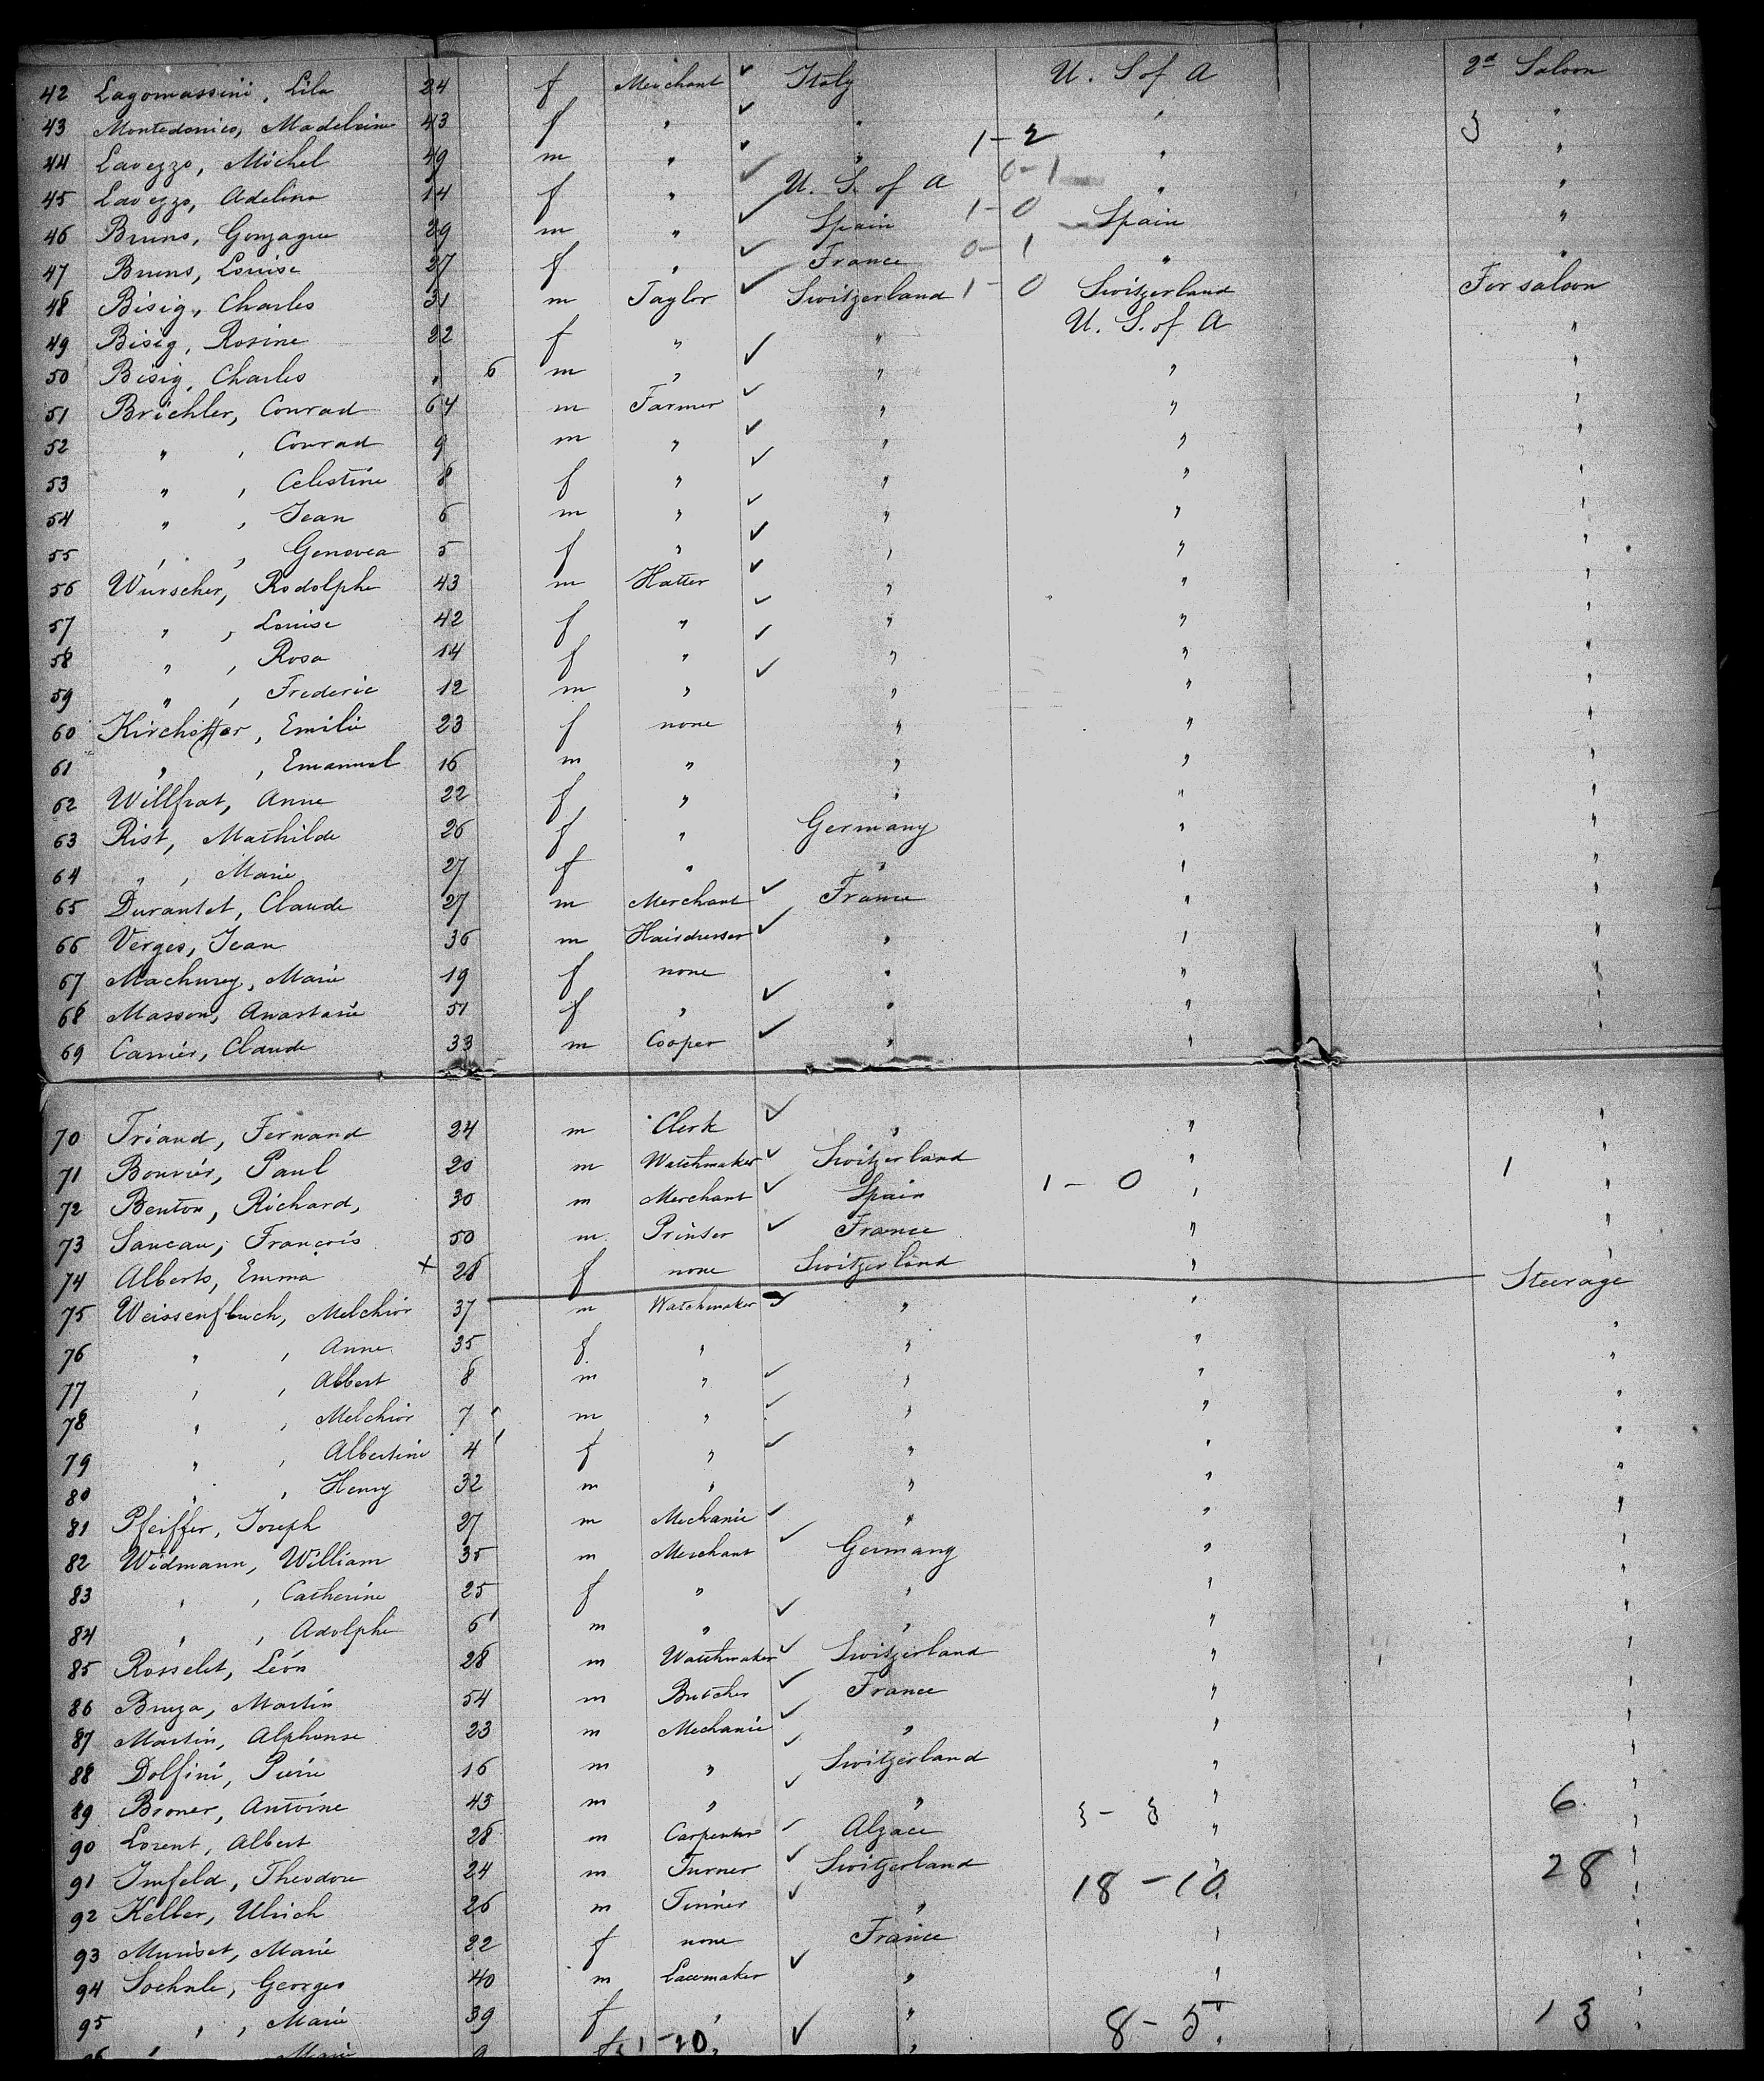 42 Lagomassini, Lila 24 f Merchant ✓ Italy U. S of A 2d Saloon
43 Montedonico, Madeleine 43 f " ✓ " " "
1-2 3
44 Lavezzo, Michel 49 m " ✓ " " "
45 Lavezzo, Adelina 14 f " ✓ U. S. of A 0-1 " "
46 Bruns, Gonzague 29 m " ✓ Spain 1-0 Spain "
47 Bruns, Louise 27 f " ✓ France 0-1 " "
48 Bisig, Charles 31 m Taylor ✓ Switzerland 1-0 Switzerland For saloon
49 Bisig, Rosine 22 f " " U. S. of A "
50 Bisig, Charles " 6 m " ✓ " " "
51 Brichler, Conrad 64 m Farmer ✓ " " "
52 " , Conrad 9 m " ✓ " " "
53 " , Celestine 8 f " ✓ " " "
54 " , Jean 6 m " ✓ " " "
55 " , Genovea 5 f " ✓ " " "
56 Wurscher, Rodolphe 43 m Hatter ✓ " " "
57 " , Louise 42 f " ✓ " " "
58 " , Rosa 14 f " ✓ " " "
59 " , Frederic 12 m " ✓ " " "
60 Kirchoffer, Emilie 23 f none " " "
61 " , Emanuel 16 m " " " "
62 Willfrat, Anne 22 f " " " "
63 Rist, Mathilde 26 f " Germany " "
64 " , Marie 27 f " " " "
65 Durantet, Claude 27 m Merchant ✓ France " "
66 Verges, Jean 36 m Hairdresser ✓ " " "
67 Machurey, Marie 19 f none " " "
68 Masson, Anastasie 51 f " ✓ " " "
69 Carrier, Claude 33 m Cooper ✓ " " "
70 Triaud, Fernand 24 m Clerk ✓ " " "
71 Bouvier, Paul 20 m Watchmaker ✓ Switzerland " "
72 Benton, Richard, 30 m Merchant ✓ Spain 1-0 " 1 "
73 Saucau, François 50 m Printer ✓ France " "
74 Alberts, Emma × 28 f none Switzerland " "
75 Weissenfluch, Melchior 37 m Watchmaker ✓ " " Steerage
76 " , Anne 35 f " " " "
77 " , Albert 8 m " ✓ " " "
78 " , Melchior 7 m " ✓ " " "
79 " , Albertine 4 f " ✓ " " "
80 " , Henry 32 m " " " "
81 Pfeiffer, Joseph 27 m Mechanic ✓ " " "
82 Widmann, William 35 m Merchant ✓ Germany " "
83 " , Catherine 25 f " " " "
84 " , Adolphe 6 m " ✓ " " "
85 Rosselet, Léon 28 m Watchmaker ✓ Switzerland " "
86 Bruza, Martin 54 m Butcher ✓ France " "
87 Martin, Alphonse 23 m Mechanic ✓ " " "
88 Dolfini, Pierre 16 m " ✓ Switzerland " "
89 Broner, Antoine 43 m " ✓ " 3-3 " 6 "
90 Lorent, Albert 28 m Carpenter ✓ Alzace " "
91 Imfeld, Theodore 24 m Turner ✓ Switzerland 18-10 " 28 "
92 Keller, Ulrich 26 m Tinner ✓ " " "
93 Muriset, Marie 22 f none France " "
94 Soehnle, Georges 40 m Lacemaker ✓ " " "
95 " , Marie 39 f " " 8-5 " 13 "
Marie 9 f 1-20 ✓ " "